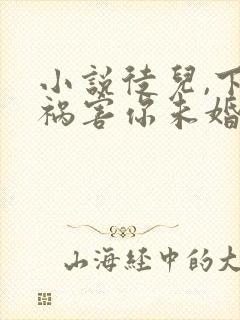 小說徒兒,下
禍害你未婚
山海經中的大